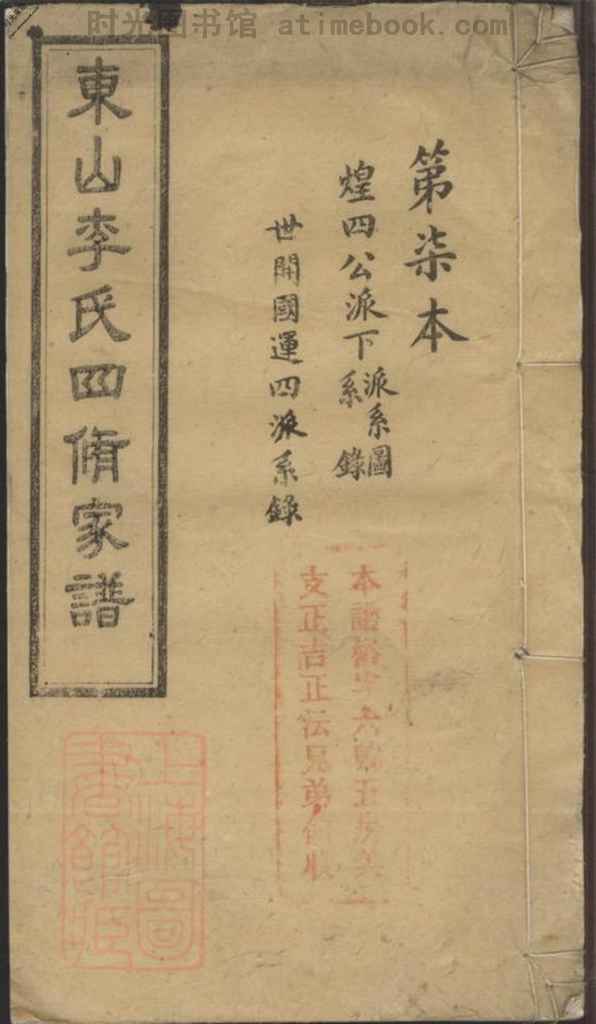 时光图书馆 - atimebook.com
第柒本
煌四公派下派系圖
系錄
世開國運四派系錄
東山李氏四脩家譜
本譜
支正吉正法兄弟領收
上海圖
書館藏